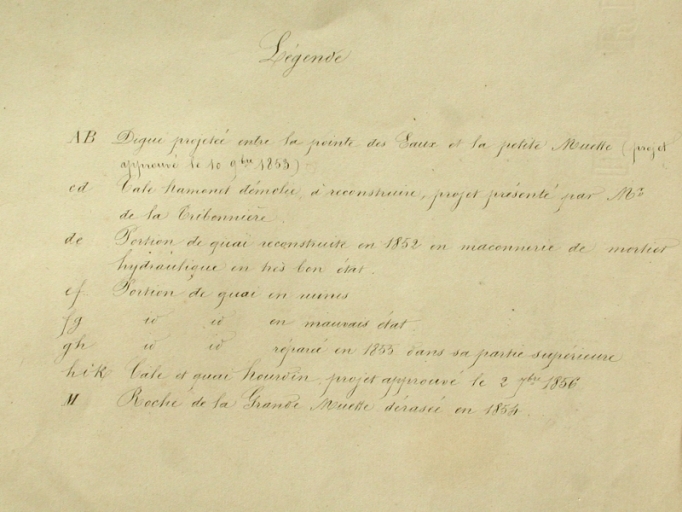 Légende
AB Digue projetée entre la pointe des Eaux et la petite Muette (projet
approuvé le 10 9bre 1853)
cd Cale hamonet démolie, à reconstruire, projet présenté par Mr
de la Tribonnière.
de Portion de quai reconstruite en 1852 en maconnerie de mortier
hydraulique en très bon état.
ef Portion de quai en ruines
fg id id en mauvais état.
gh id id réparée en 1855 dans sa partie supérieure
hik Cale et quai hourdin, projet approuvé le 2 7bre 1856
M Roche de la Grande Muette dérasée en 1854.